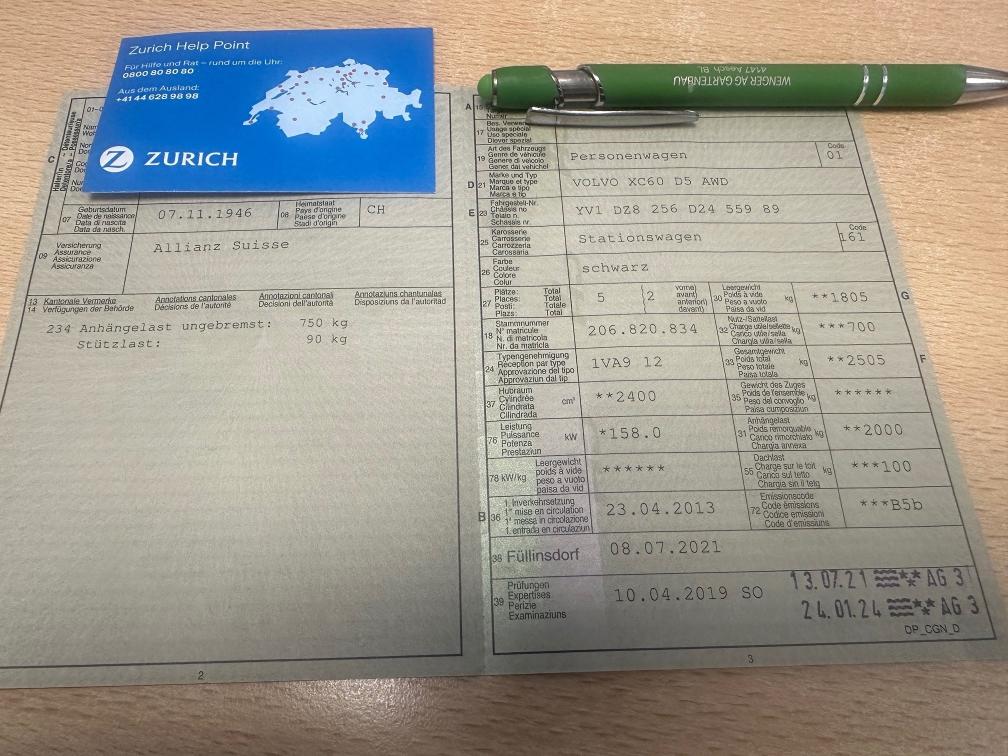 Zurich Help Point
Für Hilfe und Rat – rund um die Uhr:
0800 80 80 80
Aus dem Ausland:
+41 44 628 98 98
ZURICH
WENGER AG GARTENBAU
4147 Aesch BL
C
07 Geburtsdatum
Date de naissance
Data di nascita
Data da nasch.
07.11.1946
08 Heimatstaat
Pays d'origine
Paese d'origine
Stadi d'origin
CH
09 Versicherung
Assurance
Assicurazione
Assicuranza
Allianz Suisse
13 Kantonale Vermerke
14 Verfügungen der Behörde
Annotations cantonales
Décisions de l'autorité
Annotazioni cantonali
Decisioni dell'autorità
Annotaziuns chantunalas
Disposiziuns da l'autoritad
234 Anhängelast ungebremst: 750 kg
Stützlast: 90 kg
2
A 15
Numer
17 Bes. Verwend
Usage spécial
Uso speciale
Diever spezial
19 Art des Fahrzeugs
Genre de véhicule
Genere di veicolo
Gener dal vehichel
Personenwagen
Code
01
D 21 Marke und Typ
Marque et type
Marca e tipo
Marca e tip
VOLVO XC60 D5 AWD
E 23 Fahrgestell-Nr.
Châssis no
Telaio n.
Schassis nr.
YV1 DZ8 256 D24 559 89
25 Karosserie
Carrosserie
Carrozzeria
Carossaria
Stationswagen
Code
161
26 Farbe
Couleur
Colore
Colur
schwarz
27 Plätze: Total
Places: Total
Posti: Totale
Plazs: Total
5
2
vorne)
avant)
anteriori)
davant)
30 Leergewicht
Poids à vide
Peso a vuoto
Paisa da vid
kg
**1805
G
18 Stammnummer
N° matricule
N. di matricola
Nr. da matricla
206.820.834
32 Nutz-/Sattellast
Charge utile/sellette
Carico utile/sella
Chargia utila/sella
kg
***700
24 Typengenehmigung
Réception par type
Approvazione del tipo
Approvaziun dal tip
1VA9 12
33 Gesamtgewicht
Poids total
Peso totale
Paisa totala
kg
**2505
F
37 Hubraum
Cylindrée
Cilindrata
Cilindrada
cm³
**2400
35 Gewicht des Zuges
Poids de l'ensemble
Peso del convoglio
Paisa cumposiziun
kg
******
76 Leistung
Puissance
Potenza
Prestaziun
kW
*158.0
31 Anhängelast
Poids remorquable
Carico rimorchiato
Chargia annexa
kg
**2000
78 kW/kg
Leergewicht
poids à vide
peso a vuoto
paisa da vid
******
55 Dachlast
Charge sur le toit
Carico sul tetto
Chargia sin il tetg
kg
***100
B 36 1. Inverkehrsetzung
1re mise en circulation
1a messa in circolazione
1. entrada en circulaziun
23.04.2013
72 Emissionscode
Code émissions
Codice emissioni
Code d'emissiuns
***B5b
38 Füllinsdorf
08.07.2021
39 Prüfungen
Expertises
Perizie
Examinaziuns
10.04.2019 SO
13.07.21 AG 3
24.01.24 AG 3
DP_CGN_D
3